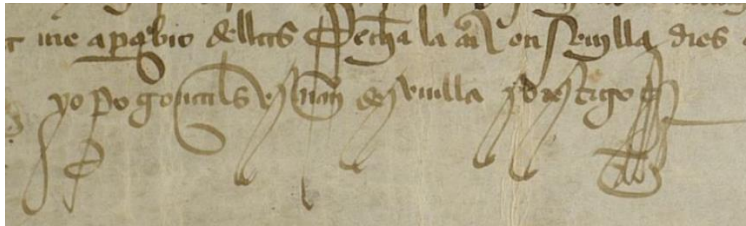 me aperçibio dellas fecha la carta en seuilla dies
yo po gonçales esno de seuilla so testigo